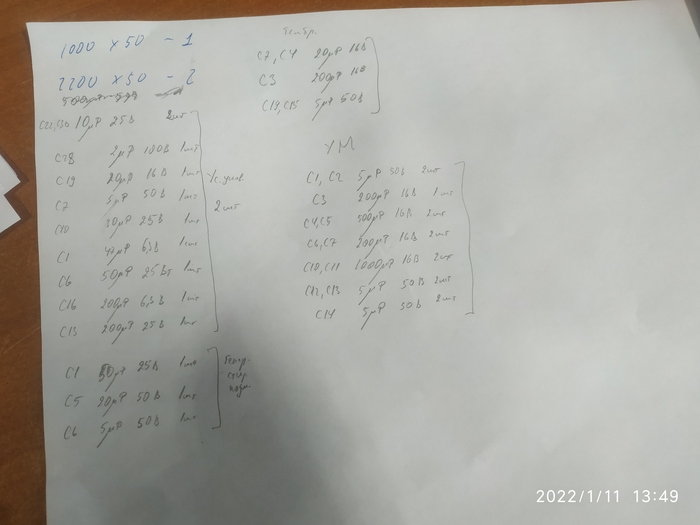 1000 x 50 - 1
2200 x 50 - 2
10μF 25В 2шт
C28 2μF 100В 1шт
C19 20μF 16В 1шт
C7 5μF 50В 1шт
C10 20μF 25В 1шт
C1 47μF 6,3В 1шт
C6 50μF 25В 1шт
C16 200μF 6,3В 1шт
C13 200μF 25В 1шт
2шт
C1 50μF 25В 1шт
C5 20μF 50В 1шт
C6 5μF 50В 1шт
C7, C4 20μF 16В
C3 200μF 16В
5μF 50В
УМ
C1, C2 5μF 50В 2шт
C3 200μF 16В 1шт
C4, C5 500μF 16В 2шт
C6, C7 200μF 16В 2шт
C10, C11 1000μF 16В 2шт
C12, C13 5μF 50В 2шт
C14 5μF 50В 2шт
2022/1/11 13:49